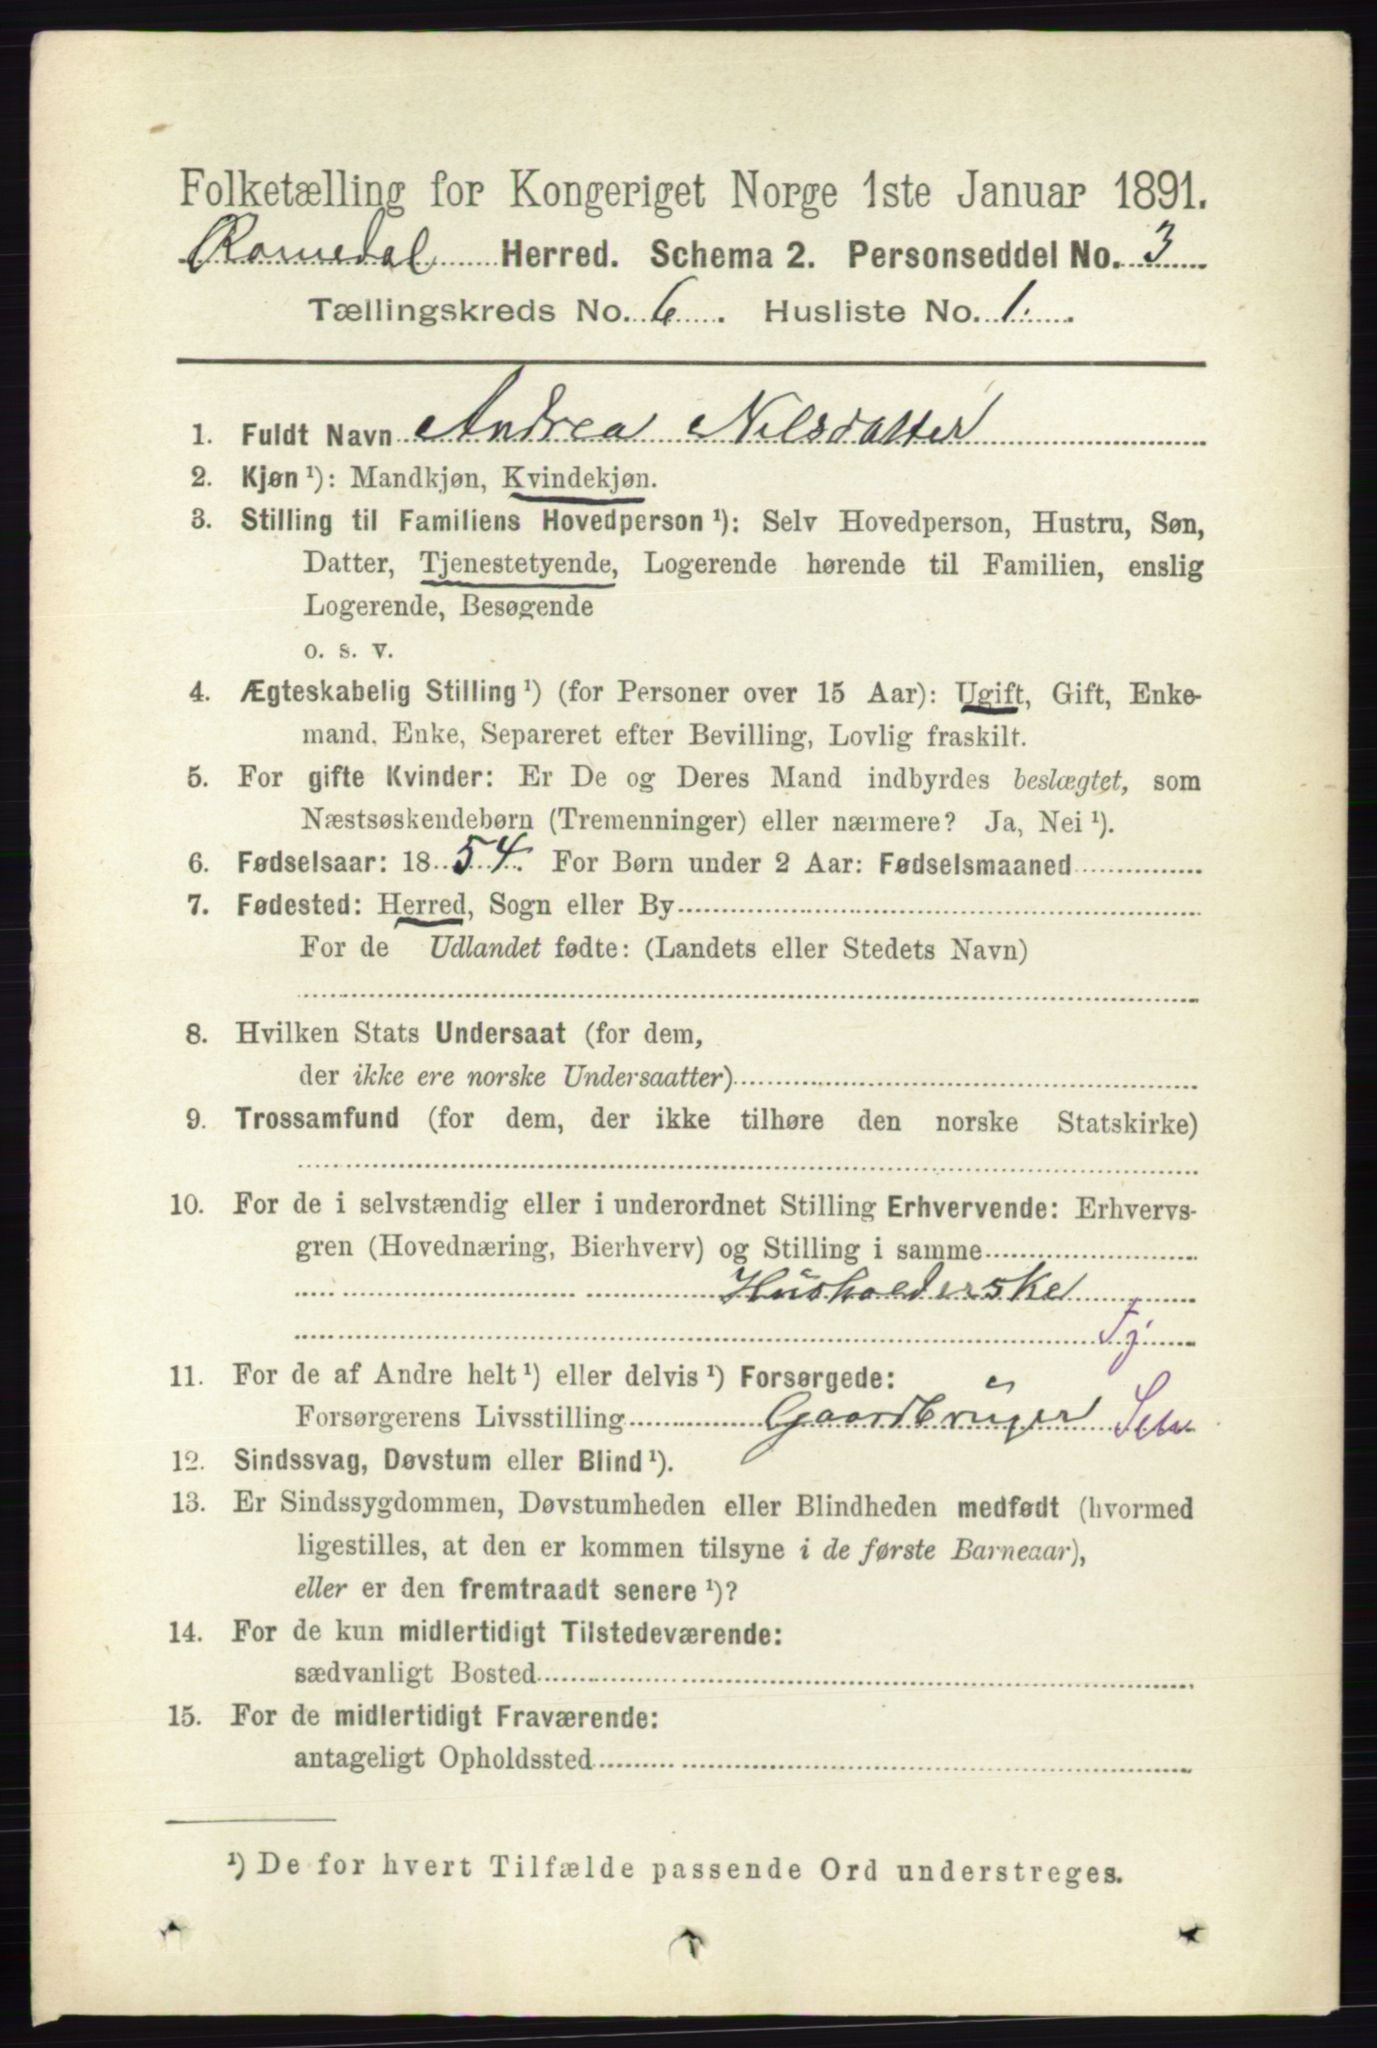 Folketælling for Kongeriget Norge 1ste Januar 1891.
Romedal Herred. Schema 2. Personseddel No. 3
Tællingskreds No. 6. Husliste No. 1.
1. Fuldt Navn Andrea Nilsdatter
2. Kjøn ¹): Mandkjøn, Kvindekjøn.
3. Stilling til Familiens Hovedperson ¹): Selv Hovedperson, Hustru, Søn,
Datter, Tjenestetyende, Logerende hørende til Familien, enslig
Logerende, Besøgende
o. s. v.
4. Ægteskabelig Stilling ¹) (for Personer over 15 Aar): Ugift, Gift, Enke-
mand, Enke, Separeret efter Bevilling, Lovlig fraskilt.
5. For gifte Kvinder: Er De og Deres Mand indbyrdes beslægtet, som
Næstsøskendebørn (Tremenninger) eller nærmere? Ja, Nei ¹).
6. Fødselsaar: 1854. For Børn under 2 Aar: Fødselsmaaned
7. Fødested: Herred, Sogn eller By
For de Udlandet fødte: (Landets eller Stedets Navn)
8. Hvilken Stats Undersaat (for dem,
der ikke ere norske Undersaatter)
9. Trossamfund (for dem, der ikke tilhøre den norske Statskirke)
10. For de i selvstændig eller i underordnet Stilling Erhvervende: Erhvervs-
gren (Hovednæring, Bierhverv) og Stilling i samme
Husholderske
Tj.
11. For de af Andre helt ¹) eller delvis ¹) Forsørgede:
Forsørgerens Livsstilling Gaardbruger Selv
12. Sindssvag, Døvstum eller Blind ¹).
13. Er Sindssygdommen, Døvstumheden eller Blindheden medfødt (hvormed
ligestilles, at den er kommen tilsyne i de første Barneaar),
eller er den fremtraadt senere ¹)?
14. For de kun midlertidigt Tilstedeværende:
sædvanligt Bosted
15. For de midlertidigt Fraværende:
antageligt Opholdssted
¹) De for hvert Tilfælde passende Ord understreges.